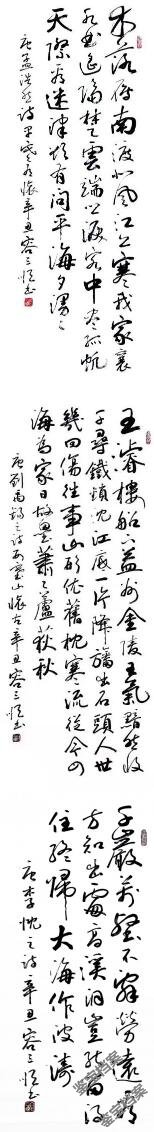 木落雁南渡北風江上寒我家襄
水曲遙隔楚雲端鄉淚客中盡孤帆
天際看迷津欲有問平海夕漫〻
唐孟浩然詩早寒有懷辛丑容三恆書
王濬樓船下益州金陵王氣黯然收
千尋鐵鎖沉江底一片降旛出石頭人世
幾回傷往事山形依舊枕寒流從今四
海為家日故壘蕭〻蘆荻秋
唐劉禹錫之詩西塞山懷古辛丑容三恆書
千巖萬壑不辭勞遠看
方知出處高溪澗豈能留得
住終歸大海作波濤
唐李忱之詩辛丑容三恆書